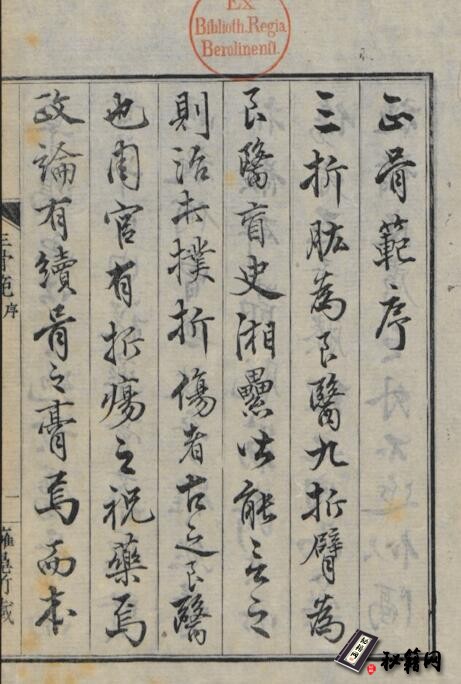 Ex
Biblioth. Regia
Berolinensi.
正骨範序
三折肱為良醫九折臂為
良醫盲史湘纍皆能言之
則治打撲折傷者古之良醫
也周官有折瘍之祝藥焉
政論有續骨之膏焉而本
正骨範 序
一
藏
秘籍网
秘籍网